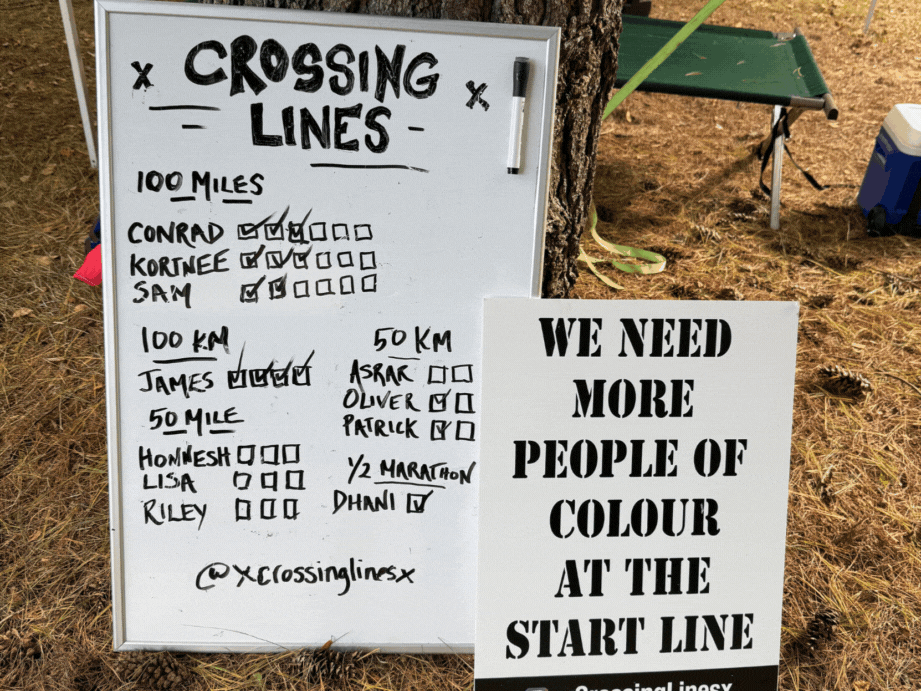 x CROSSING x
- LINES -
100 MILES
CONRAD
KORTNEE
SAM
100 KM
JAMES
50 MILE
HONNESH
LISA
RILEY
50 KM
ASRAR
OLIVER
PATRICK
1/2 MARATHON
DHANI
@xcrossinglinesx
WE NEED
MORE
PEOPLE OF
COLOUR
AT THE
START LINE
CrossingLinesx